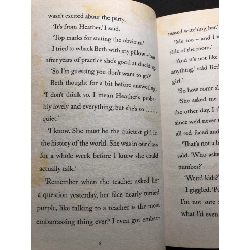 wasn't excited about the party.
'It's from Heather,' I said.
'Top marks for stating the obvious!'
I tried to whack Beth with my pillow, but
after years of practice she's good at ducking.
'So I'm guessing you don't want to go?'
Beth thought for a bit before answering.
'I don't think so. I mean Heather's proba-
bly lovely and everything, but she's so ......
quiet.'
'I know. She must be the quietest girl in
the history of the world. She was in our class
for a whole week before I knew she could
actually talk.'
'Remember when the teacher asked her
a question yesterday, her face nearly turned
purple, like talking to a teacher is the most
embarrassing thing ever? I even got embar-
8
'Me too – and I
side of the room.'
'And it's not like
girl,' said Beth
So how come
She asked me
all red faced and
'That's not a
said. 'Who asks
number?'
'Weird kids?'
I giggled. 'I
I'm not sure
what I'd even